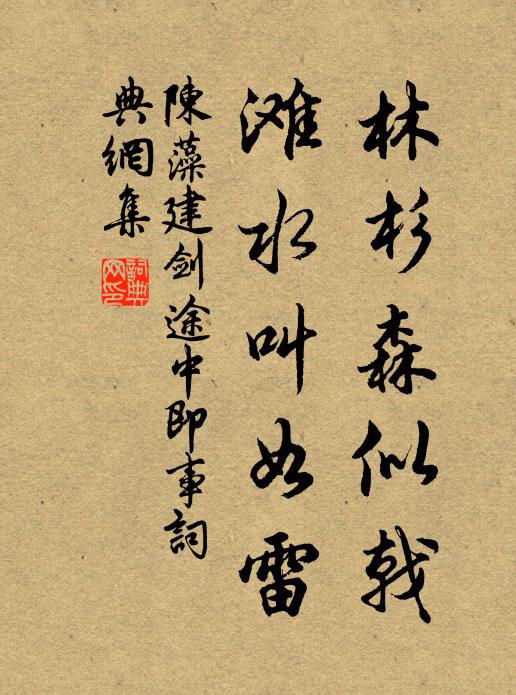 林杉森似戟
滩水叫如雷
陳藻建劍途中即事詞
典網集
詞典
网印